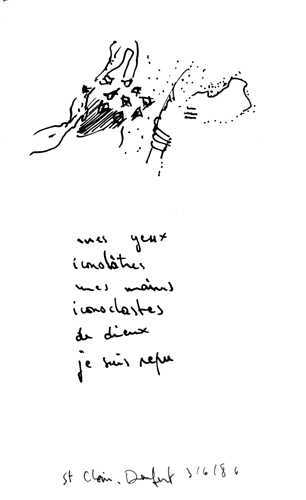 mes yeux
iconolâtres
mes mains
iconoclastes
de dieux
je suis repu
St Clair. Danfert 3/6/86